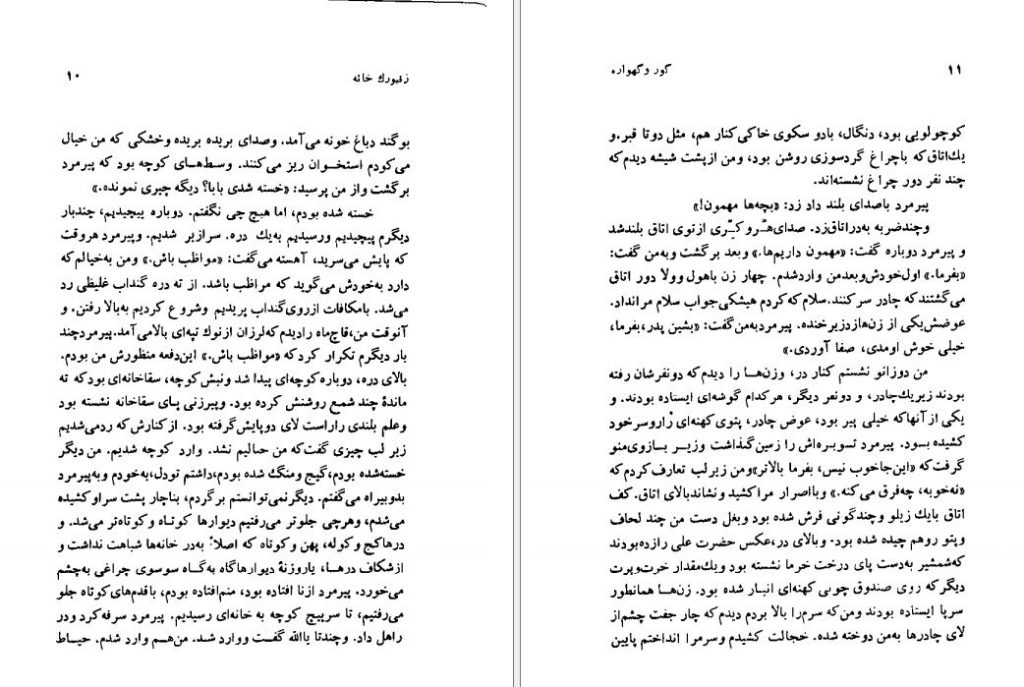 زنبورك خانه ۱۰
بوگند دباغ خونه می‌آمد. وصدای بریده بریده وخشکی که من خیال
می‌کودم استخـوان ریز می‌کنند. وسط‌هـای کوچه بود که پیرمرد
برگشت واز من پرسید: «خسته شدی بابا؟ دیگه چیری نمونده.»
خسته شده بودم، اما هیچ چی نگفتم. دوباره پیچیدیم، چندبار
دیگرم پیچیدیم ورسیدیم به‌یك دره. سرازبر شدیم. وپیرمرد هروقت
که پایش می‌سرید، آهسته می‌گفت: «مواظب باش.» ومن به‌خیالم‌که
دارد به‌خودش می‌گوید که مراظب باشد. از ته دره گنداب غلیظی رد
می‌شد. بامکافات ازروی‌گنداب پریدیم وشروع کردیم به‌بالا رفتن. و
آنوقت من،قاچ‌ماه رادیدم‌که‌لرزان ازنوك تپه‌ای بالامی‌آمد.پیرمردچند
بار دیگرم تکرار کردکه «مواظب باش.» این‌دفعه منظورش من بودم.
بالای دره، دوباره کوچه‌ای پیدا شد ونبش‌کوچه، سقاخانه‌ای بودکه ته
ماندهٔ چند شمـع روشنش کرده بود. وپیرزنی پـای سقاخانه نشسته بود
وعلم بلندی راراست لای دوپایش‌گرفته بود. از کنارش‌که ردمی‌شدیم
زیر لب چیزی گفت‌که من حـالیم نشد. وارد کوچه شدیم. من دیگر
خسته‌شده بودم،گیج ومنگ شده بودم،داشتم تودل،به‌خودم وبه‌پیرمرد
بدوبیراه می‌گفتم. دیگرنمی‌توانستم برگردم، بناچار پشت سراوکشیده
می‌شدم، وهرچی جلوتر می‌رفتیم دیوارها کوتـاه وکوتاه‌تر می‌شد. و
درهاکج وکوله، پهن وکوتاه که اصلاً به‌در خانه‌ها شباهت نداشت و
ازشکاف درهـا، یاروزنهٔ دیوارهاگاه به‌گاه سوسوی چراغی به‌چشم
می‌خورد. پیرمرد ازنا افتاده بود، منم‌افتاده بودم، باقدم‌های‌کوتاه جلو
می‌رفتیم، تا سرپیچ کوچه به خانه‌ای رسیدیم. پیرمرد سرفه‌کرد ودر
راهل داد. وچندتا یاالله گفـت ووارد شـد. من‌هـم وارد شدم. حیـاط
گور وگهواره ۱۱
کوچولویی بود، دنگال، بادو سکوی خاکی‌کنار هم، مثل دوتا قبر.و
یك‌اتاق‌که باچراغ گردسوزی روشن بود، ومن ازپشت شیشه دیدم‌که
چند نفر دور چراغ نشسته‌اند.
پیرمرد باصدای بلند داد زد: «بچه‌ها مهمون!»
وچندضربه به‌دراتاق‌زد. صدای‌هـِّروکـِّری ازتوی اتاق بلندشد
و پیرمرد دوباره گفت: «مهمون داریم‌ها.» وبعد برگشت وبه‌من گفت:
«بفرما.» اول‌خودش‌وبعدمن واردشدم. چهار زن باهول وولا دور اتاق
می‌گشتندکه چادر سرکنند.سلام‌که‌کردم هیشکی‌جواب سلام مرانداد.
عوضش‌یکی از زن‌هازدزیرخنده. پیرمردبه‌من‌گفت: «بشین پدر،بفرما،
خیلی خوش اومدی، صفا آوردی.»
من دوزانو نشستم کنار در، وزن‌هـا را دیدم‌که دونفرشان رفته
بودند زیریك‌چادر، و دونعر دیگر، هرکدام گوشه‌ای ایستاده بودند. و
یکی از آنهاکه خیلی پیر بود، عوض چادر، پتوی کهنه‌ای رْاروسرخود
کشیده بـود. پیرمرد تـوبره‌اش را زمین‌گـذاشت وزیـر بـازوی‌منو
گرفت‌که «این‌جاخوب نیس، بفرما بالاتر»ومن زیرلب تعارف‌کردم‌که
«نه‌خوبه، چه‌فرق می‌کنه.» وبااصرار مراکشید ونشاندبالای اتاق.کف
اتاق بایك زیلو وچندگونی فرش شده بود وبغل دست من چند لحاف
وپتو روهم چیده شده بود. وبالای در،عکس حضرت علی رازده‌بودند
که‌شمشیر به‌دست پای درخت خرما نشسته بود ویك‌مقدار خرت‌وپرت
دیگر‌که روی صندوق چوبی کهنه‌ای انبار شده بود. زن‌هـا همانطور
سرپا ایستاده بودند ومن‌که سرم‌را بالا بردم دیدم‌که چار جفت چشم‌از
لای چادرها به‌من دوخته شده. خجالت کشیدم وسرمرا انداختم پایین